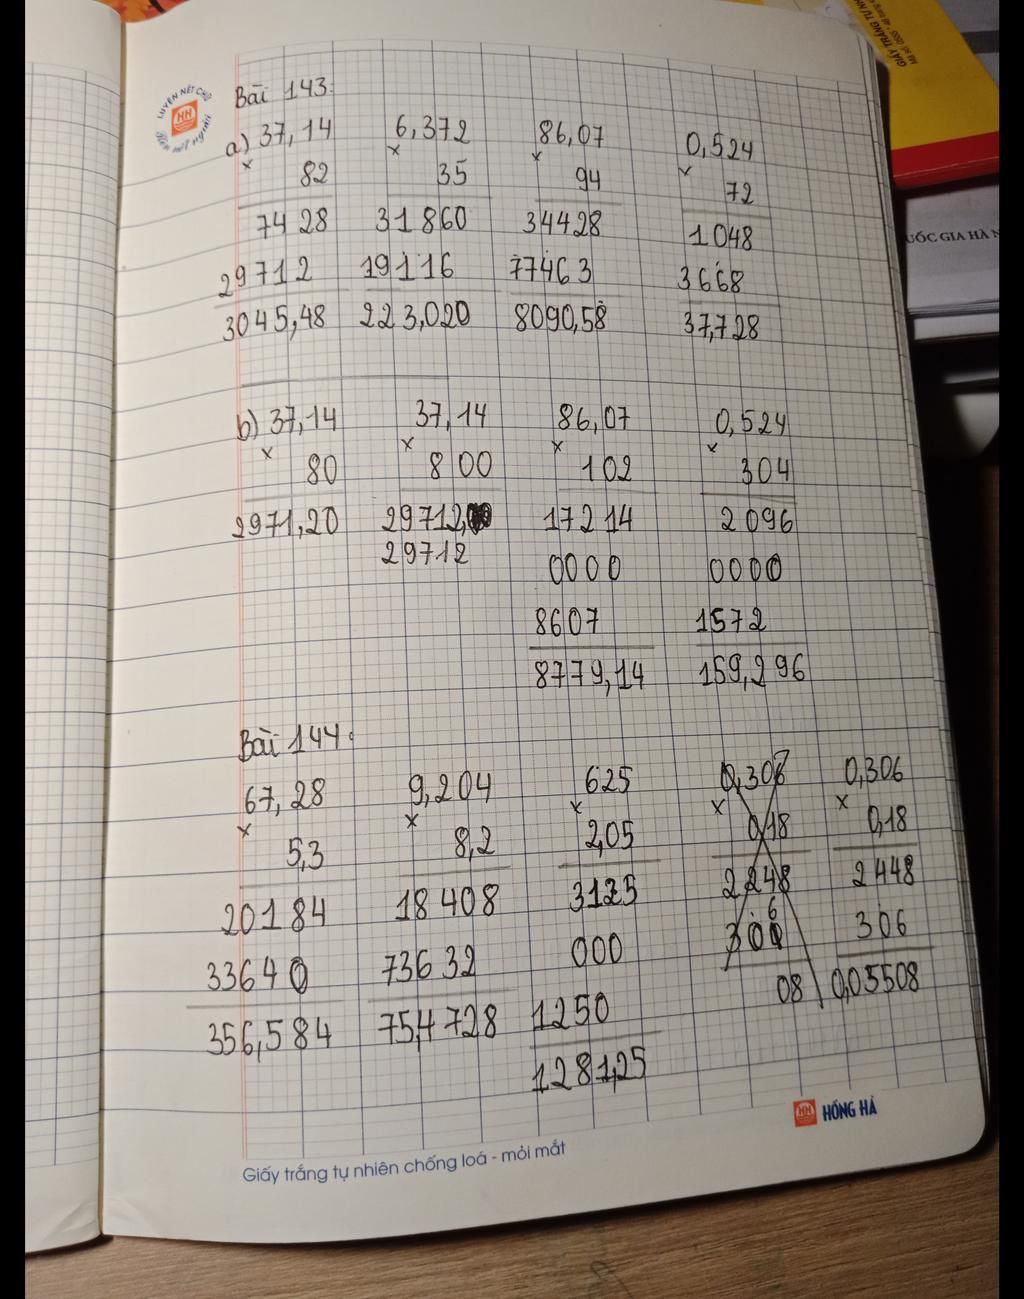 LUYỆN NẾT CHỮ
HH
Rèn nết người
Bài 143.
a) 37,14 6,372 86,07 0,524
× × × ×
82 35 94 72
7428 31860 34428 1048
29712 19116 77463 3668
3045,48 223,020 8090,58 37,728
b) 37,14 37,14 86,07 0,524
× × × ×
80 800 102 304
2971,20 29712, 17214 2096
29712 0000 0000
8607 1572
8779,14 159,296
Bài 144.
67,28 9,204 625 0,306 0,306
× × × × ×
5,3 8,2 2,05 0,18 0,18
20184 18408 3125 2248 2448
33640 73632 000 306 306
356,584 75,4728 1250 08 0,05508
1281,25
HH HỒNG HÀ
Giấy trắng tự nhiên chống loá - mỏi mắt
GIẤY TRẮNG TỰ NH
UỐC GIA HÀ N